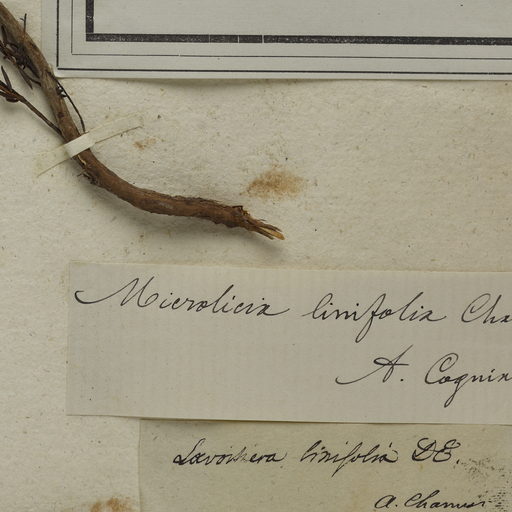 Microlicia linifolia Cha
A. Cognia
linifolia DC.
A. Chamiss